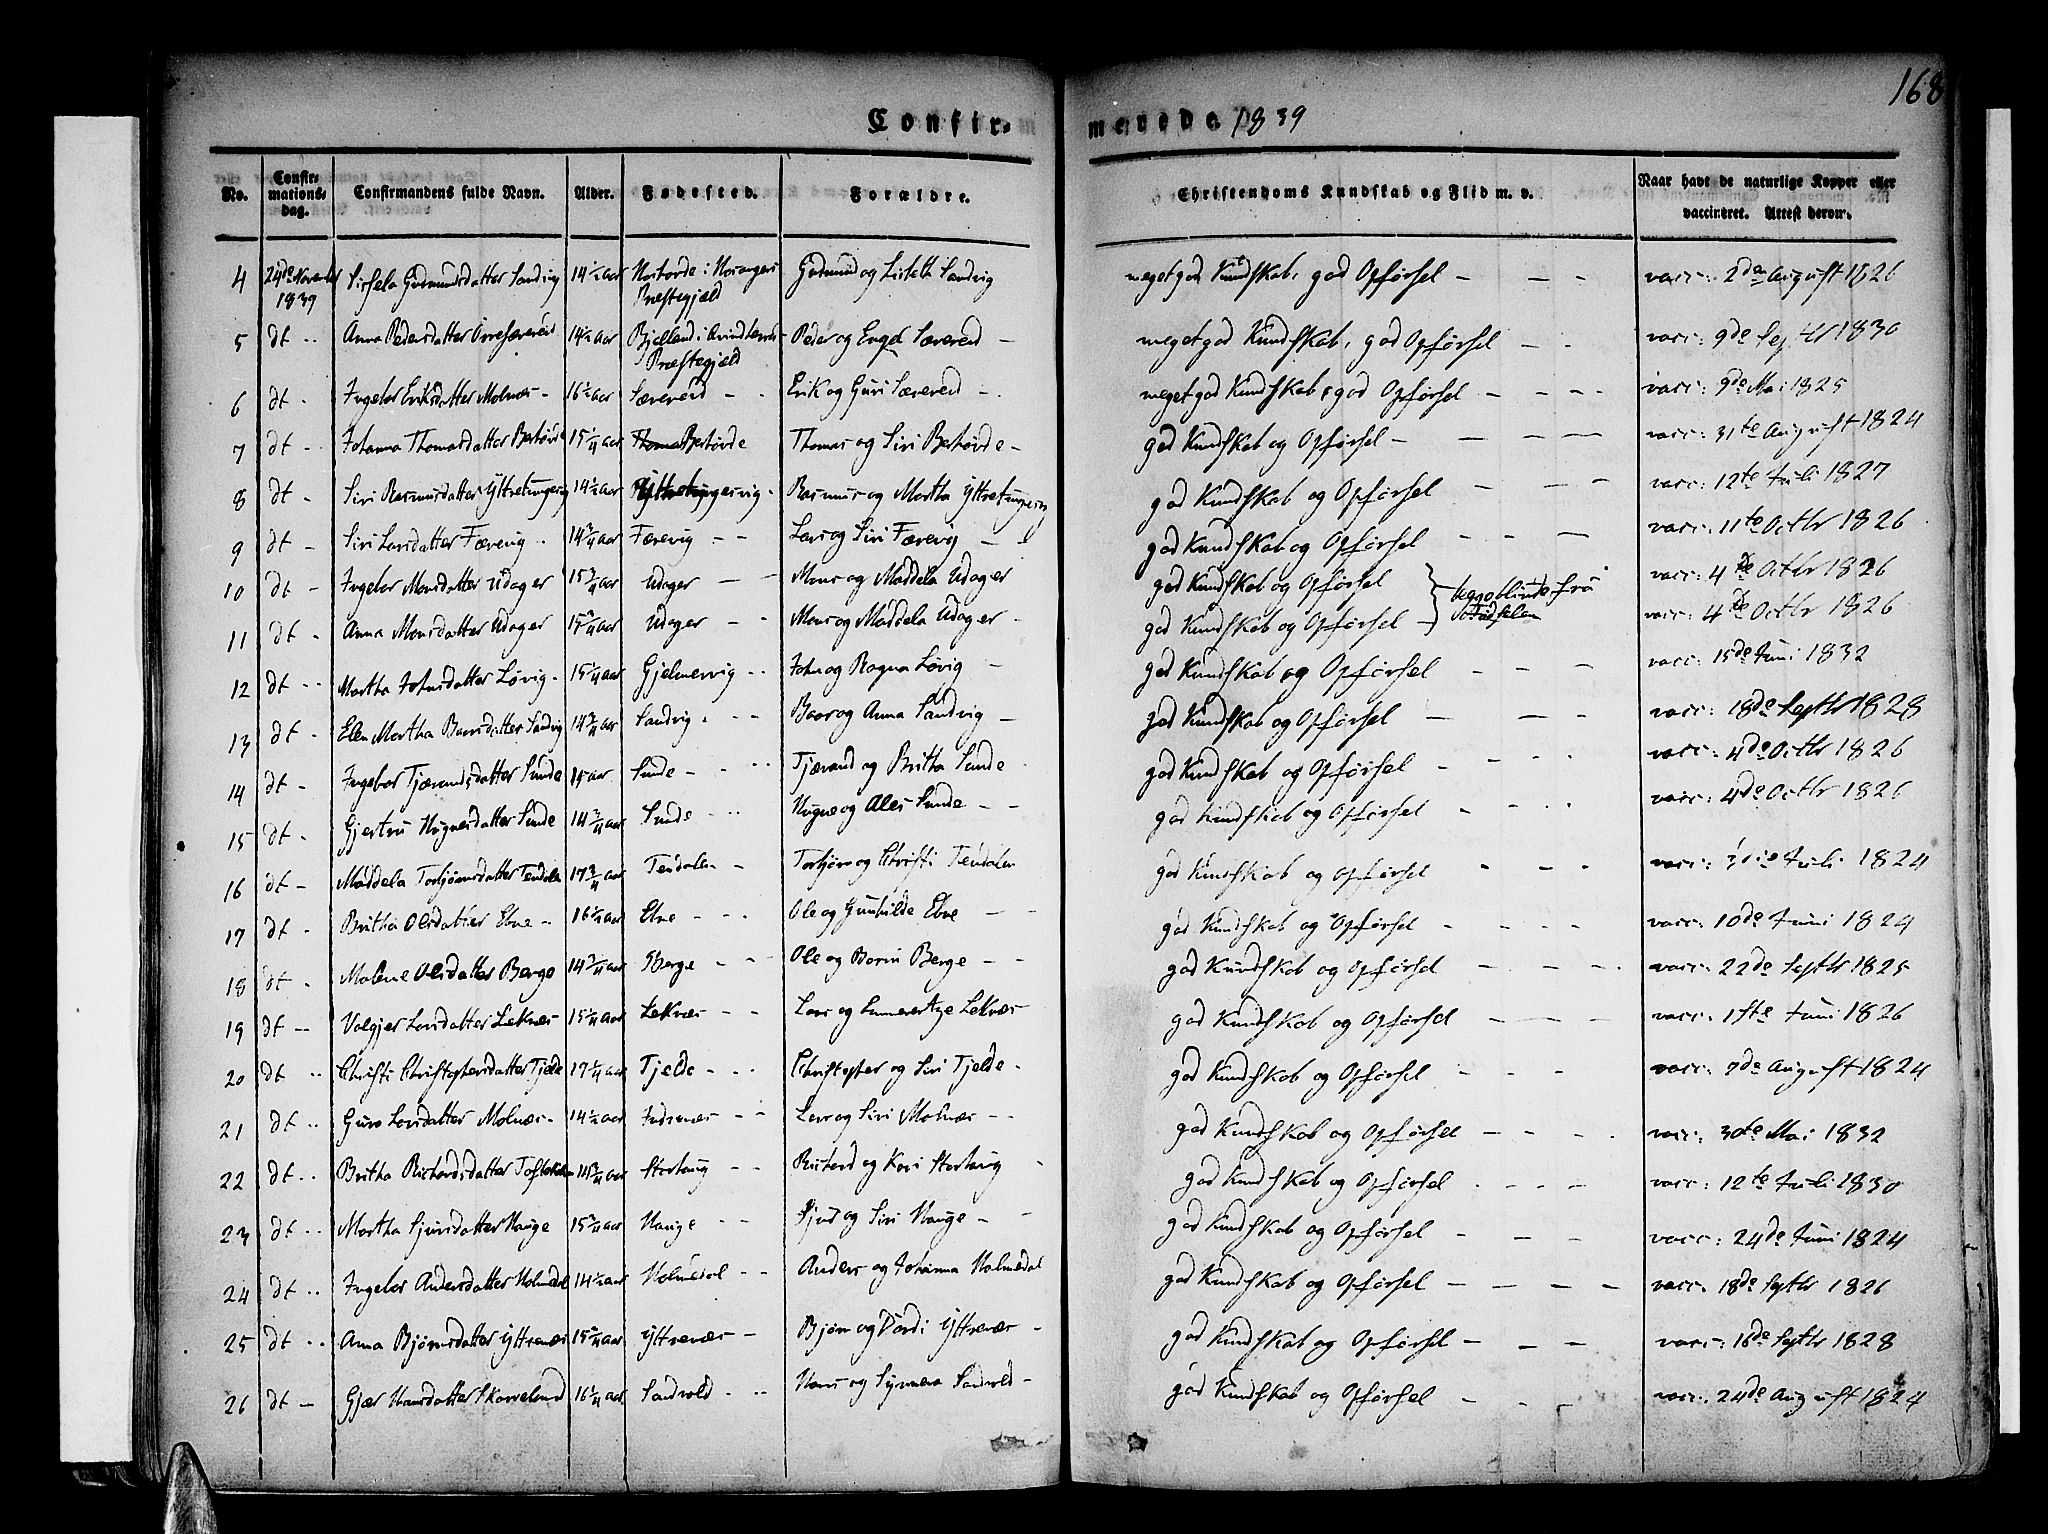 168
Confir- menede 1839
No. Confir- mations- dag. Confirmandens fulde Navn. Alder. Fødested. Forældre. Christendoms Kundskab og Flid m. v. Naar havt de naturlige Kopper eller vaccineret. Attest derom.
4 24de November 1839 Gudmundsdatter Sandvig 14 1/2 aar i Præstegjeld Gudmund og Lisbeth Sandvig meget god Kundskab, god Opførsel — — — vacc: 2den August 1826
5 dt Anna Pedersdatter 14 1/2 aar Bjelland i Qvindherreds Præstegjeld Peder og Engel Særevold — meget god Kundskab, god Opførsel — - vacc: 9de Septbr 1830
6 dt Ingebor Eriksdatter Molnæs - 16 1/2 aar Særevold - - Erik og Guri Særevold - meget god Kundskab, god Opførsel — — — vacc: 9de Mai 1825
7 dt Johanna Thomasdatter Bertørde 15 1/4 aar Bertørde Thomas og Siri Bertørde - god Kundskab og Opførsel — — — vacc: 31te August 1824
8 dt Siri Rasmusdatter 14 1/2 aar Rasmus og Martha god Kundskab og Opførsel - — — vacc: 12te Juli 1827
9 dt Siri Larsdatter Færevig 14 3/4 aar Færevig - - Lars og Siri Færevig — god Kundskab og Opførsel - - — vacc: 11te Octbr 1826
10 dt Ingebor Monsdatter Udager 15 3/4 aar Udager — - Mons og Maddela Udager god Kundskab og Opførsel vacc: 4de Octbr 1826
11 dt Anna Monsdatter Udager 15 3/4 aar Udager - - Mons og Maddela Udager - god Kundskab og Opførsel — fra Fødselen vacc: 4de Octbr 1826
12 dt Martha Johnsdatter Løvig 15 1/4 aar Gjelmervig John og Ragna Løvig — god Kundskab og Opførsel - — — vacc: 15de Juni 1832
13 dt Elen Martha Baarsdatter Sandvig 14 3/4 aar Sandvig Baar og Anna Sandvig — god Kundskab og Opførsel — — - vacc: 18de Septbr 1828
14 dt Ingebor Tjærandsdatter Sunde 15 aar Sunde Tjærand og Britha Sunde god Kundskab og Opførsel - - - vacc: 4de Octbr 1826
15 dt Gjertru Hagnesdatter Sunde 14 3/4 aar Sunde Hagne og Ales Sunde - - god Kundskab og Opførsel - - vacc: 4de Octbr 1826
16 dt Maddela Torbjørnsdatter Teudalen 17 3/4 aar Teudalen - Torbjørn og Christi Teudalen god Kundskab og Opførsel - - - vacc: Juli 1824
17 dt Britha Olesdatter Ebne 16 1/4 aar Ebne Ole og Gunhilde Ebne - - god Kundskab og Opførsel - - - vacc: 10de Juni 1824
18 dt Malene Olesdatter Berge 14 3/4 aar Berge - - - Ole og Barni Berge - - god Kundskab og Opførsel - - - vacc: 22de Septbr 1825
19 dt Valgjer Larsdatter Leknæs 15 1/4 aar Leknæs - - Lars og Leknæs god Kundskab og Opførsel - - - vacc: 1ste Juni 1826
20 dt Christi Christophersdatter Tjelde 17 1/4 aar Tjelde - Christopher og Siri Tjelde - god Kundskab og Opførsel - - - vacc: 7de August 1824
21 dt Guro Larsdatter Molnæs 14 1/2 aar Indrenæs Lars og Siri Molnæs - - god Kundskab og Opførsel - - - vacc: 30te Mai 1832
22 dt Britha Richardsdatter 14 3/4 aar Storhaug Richard og Kari Storhaug god Kundskab og Opførsel - - - vacc: 12te Juli 1830
23 dt Martha Sjursdatter Hauge 15 3/4 aar Hauge - - Sjurd og Siri Hauge - god Kundskab og Opførsel - - - vacc: 24de Juni 1824
24 dt Ingebor Andersdatter Holmedal 14 1/2 aar Holmedal - - Anders og Johanna Holmedal god Kundskab og Opførsel - - - vacc: 18de Septbr 1826
25 dt Anna Bjørnsdatter Yttrenæs 15 3/4 aar Yttrenæs - Bjørn og Dordi Yttrenæs - god Kundskab og Opførsel - - - vacc: 16de Septbr 1828
26 dt Gjær Hansdatter Skarveland 16 1/4 aar Sandvold Hans og Synneva Sandvold - god Kundskab og Opførsel - - - vacc: 24de August 1824